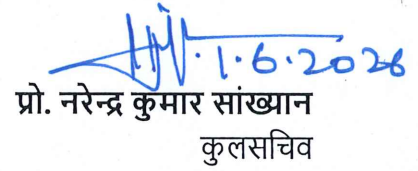 1.6.2026
प्रो. नरेन्द्र कुमार सांख्यान
कुलसचिव